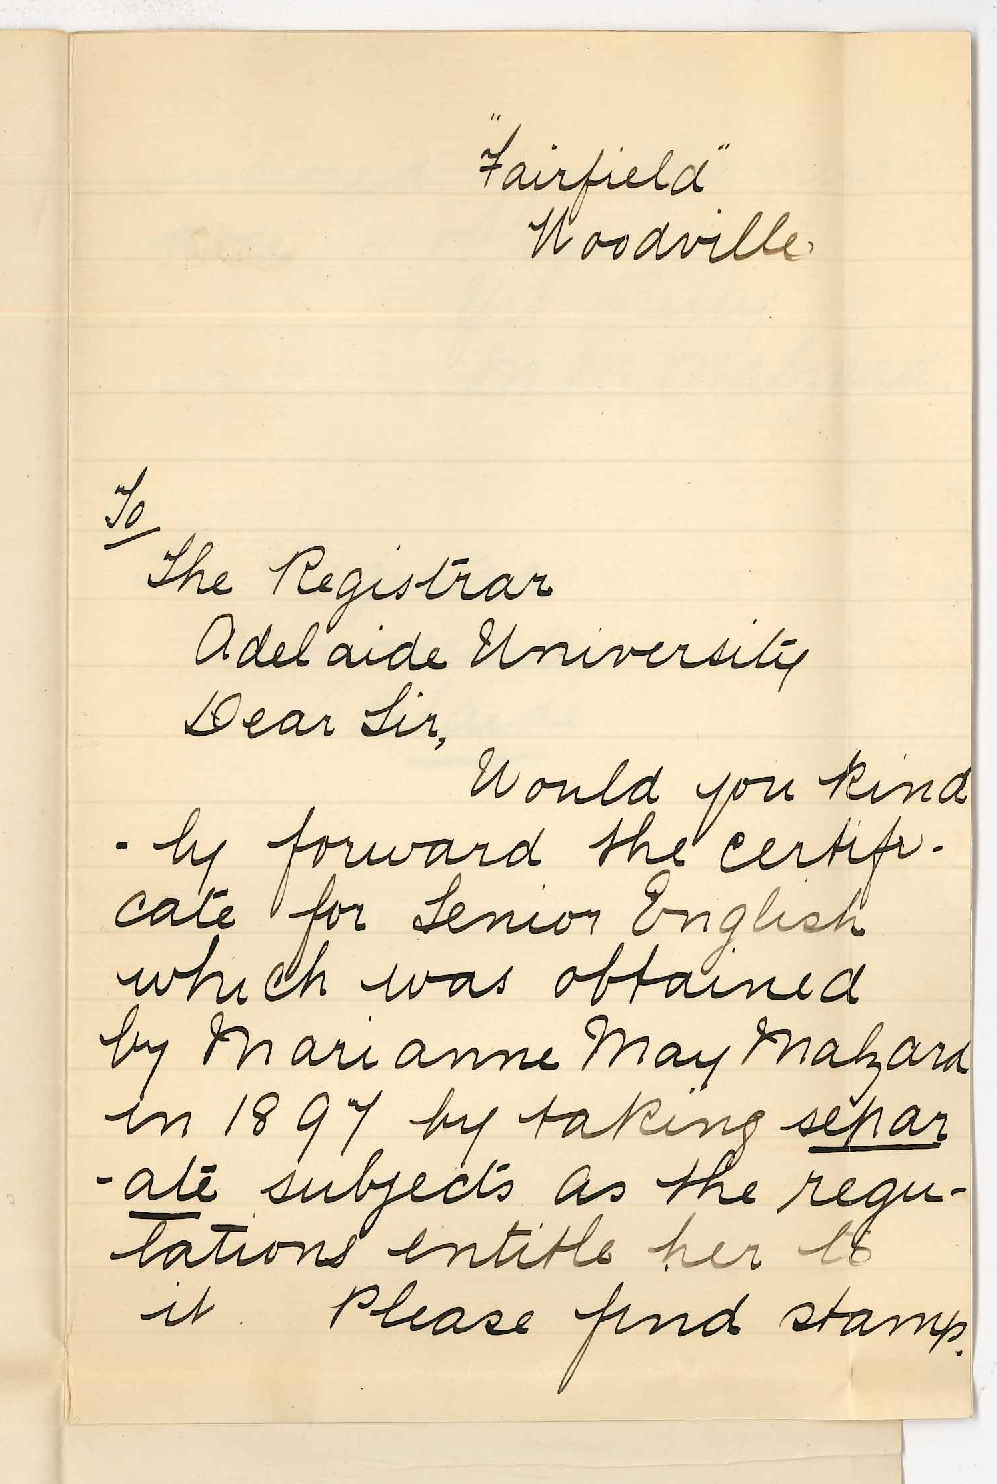 "Fairfield"
Woodville.
To
The Registrar
Adelaide University
Dear Sir,
Would you kind
- ly forward the certifi-
cate for Senior English
which was obtained
by Marianne May Malzard
in 1897 by taking separ
-ate subjects as the regu-
lations entitle her to
it. Please find stamp.